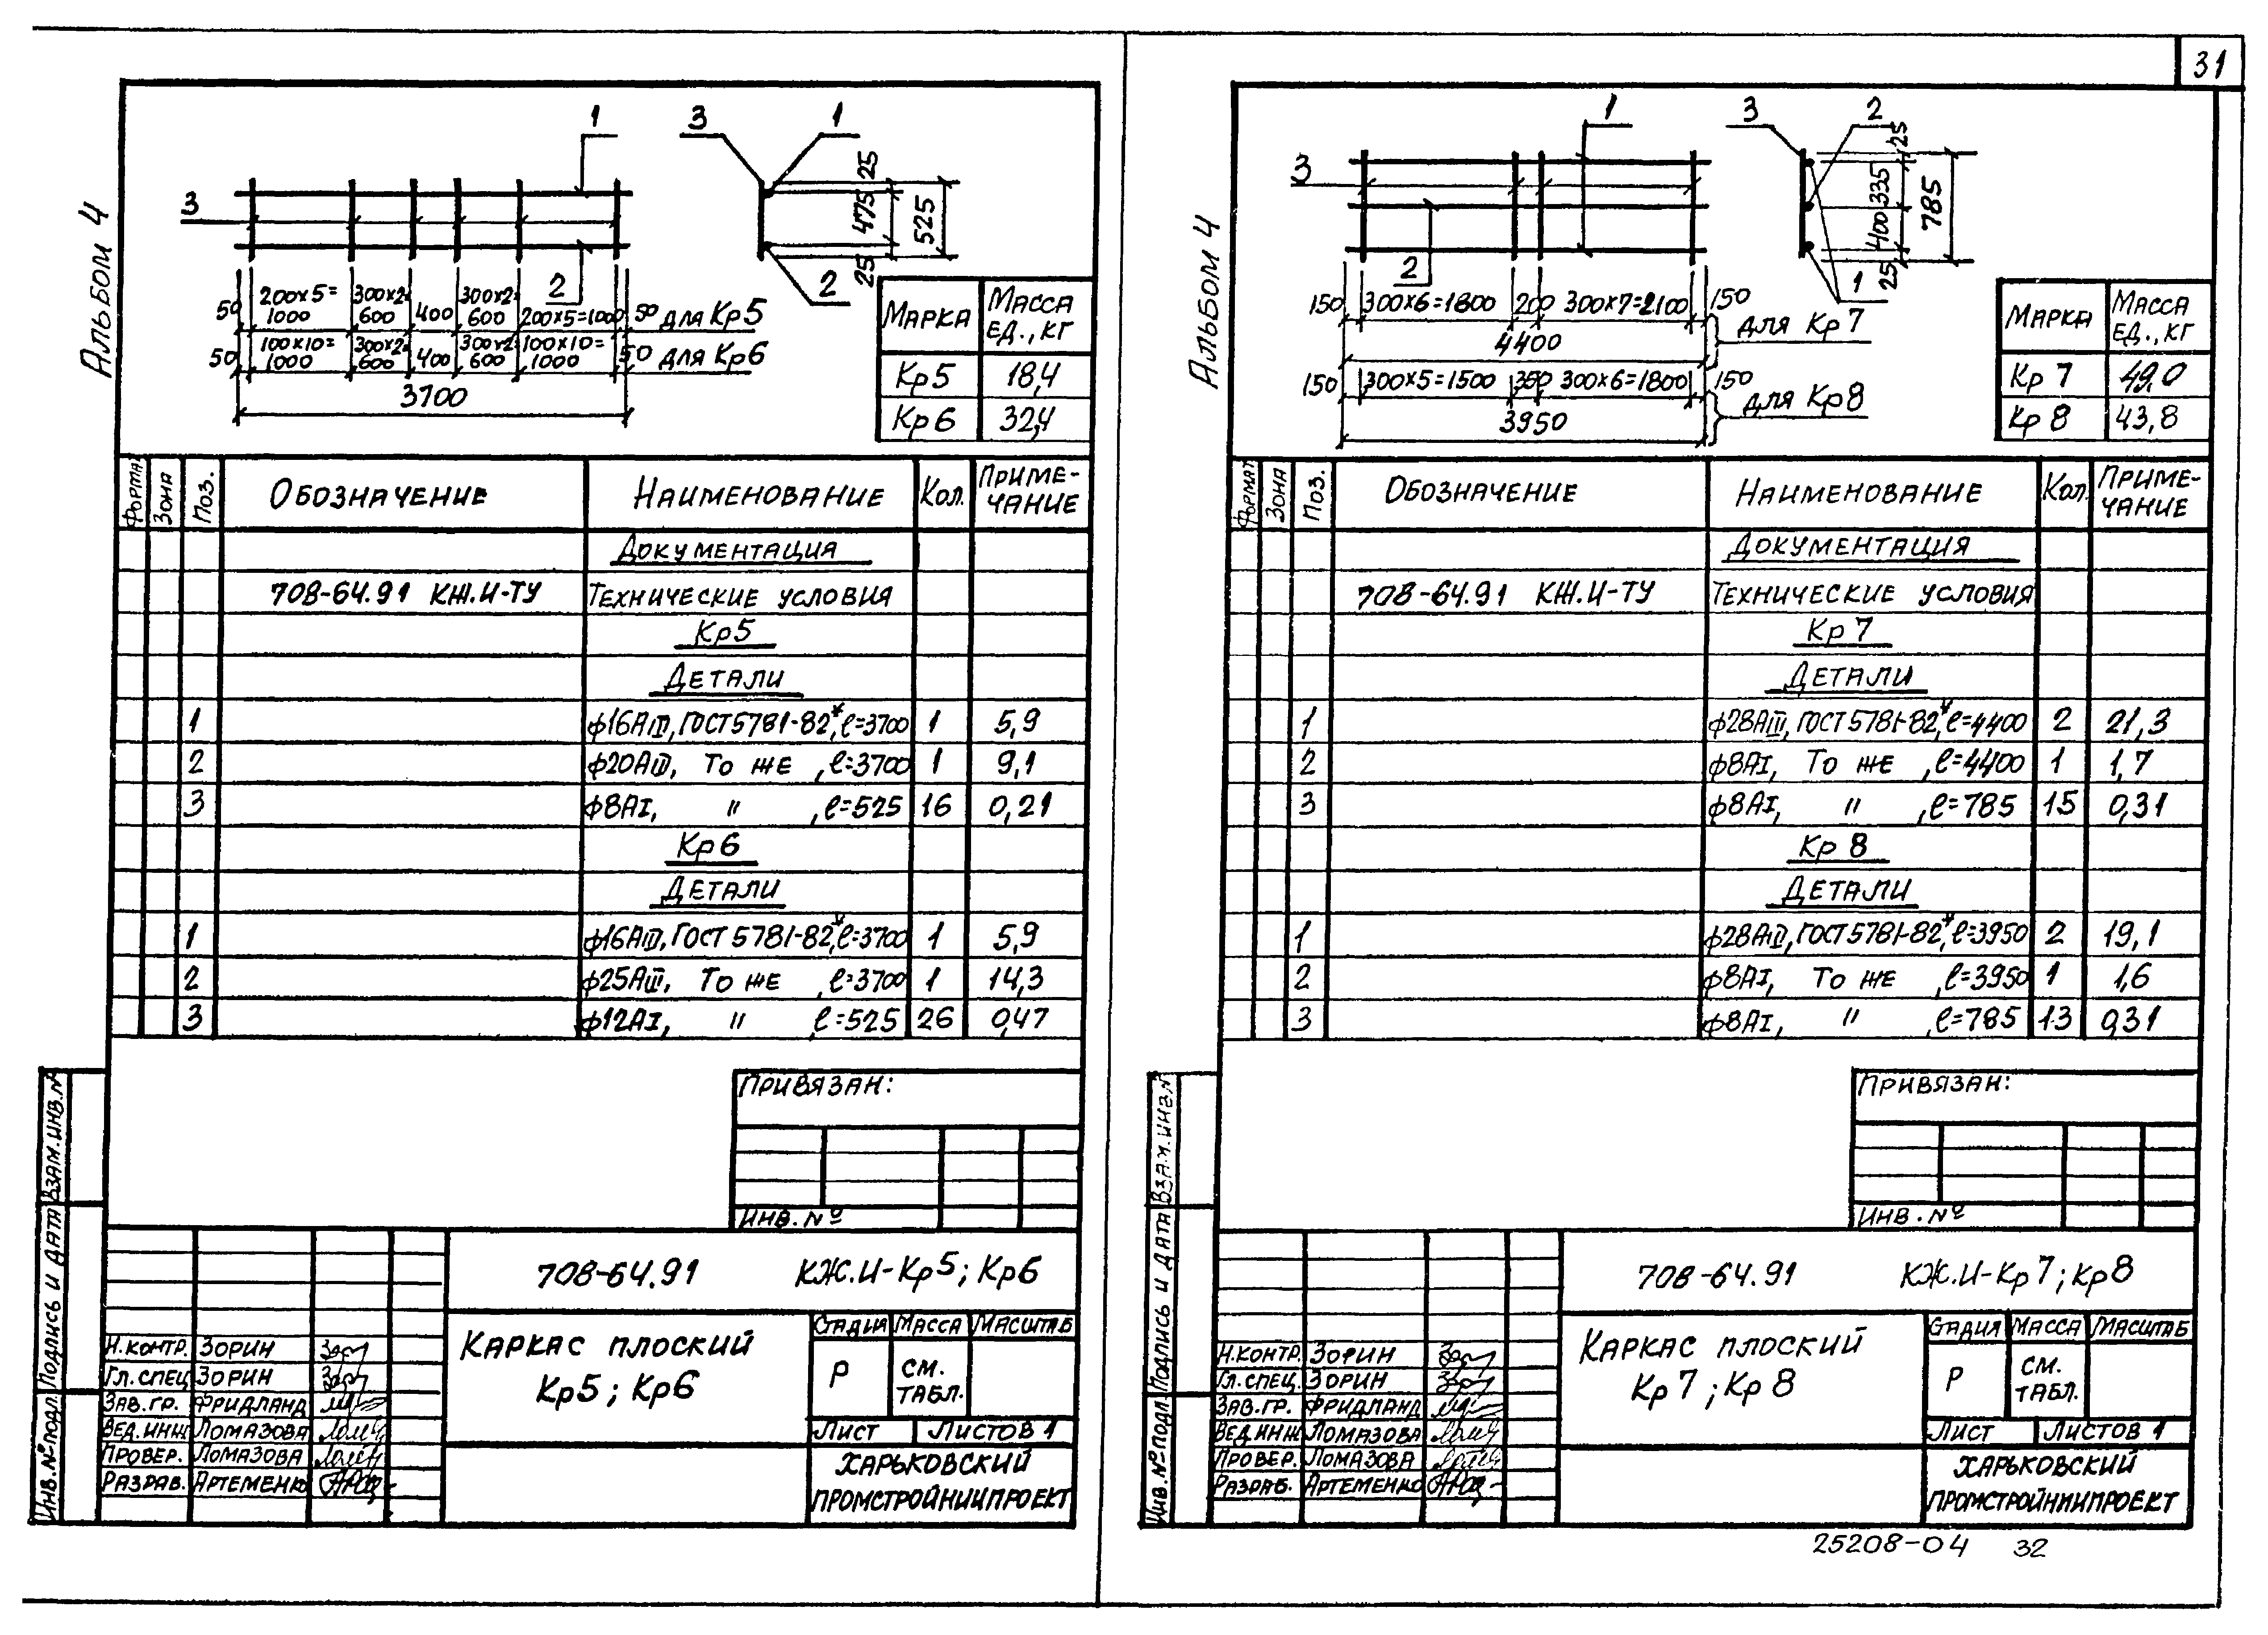 31
Альбом 4
1
3
3 1
2
2
25
475
25
525
50 200х5=1000 300х2=600 400 300х2=600 200х5=1000 50 для Кр5
50 100х10=1000 300х2=600 400 300х2=600 100х10=1000 50 для Кр6
3700
Марка Масса ед., кг
Кр5 18,4
Кр6 32,4
Формат Зона Поз. Обозначение Наименование Кол. Примечание
Документация
708-64.91 КЖ.И-ТУ Технические условия
Кр5
Детали
1 ф16АIII, ГОСТ 5781-82*, ℓ=3700 1 5,9
2 ф20АIII, То же, ℓ=3700 1 9,1
3 ф8АI, " , ℓ=525 16 0,21
Кр6
Детали
1 ф16АIII, ГОСТ 5781-82*, ℓ=3700 1 5,9
2 ф25АIII, То же, ℓ=3700 1 14,3
3 ф12АI, " , ℓ=525 26 0,47
Привязан:
Инв. №
Взам.инв.№
Подпись и дата
Инв.№подл.
708-64.91 КЖ.И-Кр5; Кр6
Каркас плоский
Кр5; Кр6
Стадия Масса Масштаб
Р см. табл.
Лист Листов 1
Харьковский
Промстройниипроект
Н.контр. Зорин
Гл.спец Зорин
Зав.гр. Фридланд
Вед.инж Ломазова
Провер. Ломазова
Разраб. Артеменко
Альбом 4
1
3
3 2
2
1
25
335
400
25
785
150 300х6=1800 200 300х7=2100 150
4400
для Кр7
150 300х5=1500 350 300х6=1800 150
3950
для Кр8
Марка Масса ед., кг
Кр7 49,0
Кр8 43,8
Формат Зона Поз. Обозначение Наименование Кол. Примечание
Документация
708-64.91 КЖ.И-ТУ Технические условия
Кр7
Детали
1 ф28АIII, ГОСТ 5781-82*, ℓ=4400 2 21,3
2 ф8АI, То же, ℓ=4400 1 1,7
3 ф8АI, " , ℓ=785 15 0,31
Кр8
Детали
1 ф28АIII, ГОСТ 5781-82*, ℓ=3950 2 19,1
2 ф8АI, То же, ℓ=3950 1 1,6
3 ф8АI, " , ℓ=785 13 0,31
Привязан:
Инв. №
Взам.инв.№
Подпись и дата
Инв.№подл.
708-64.91 КЖ.И-Кр7; Кр8
Каркас плоский
Кр7; Кр8
Стадия Масса Масштаб
Р см. табл.
Лист Листов 1
Харьковский
Промстройниипроект
Н.контр. Зорин
Гл.спец. Зорин
Зав.гр. Фридланд
Вед.инж Ломазова
Провер. Ломазова
Разраб. Артеменко
25208-04 32